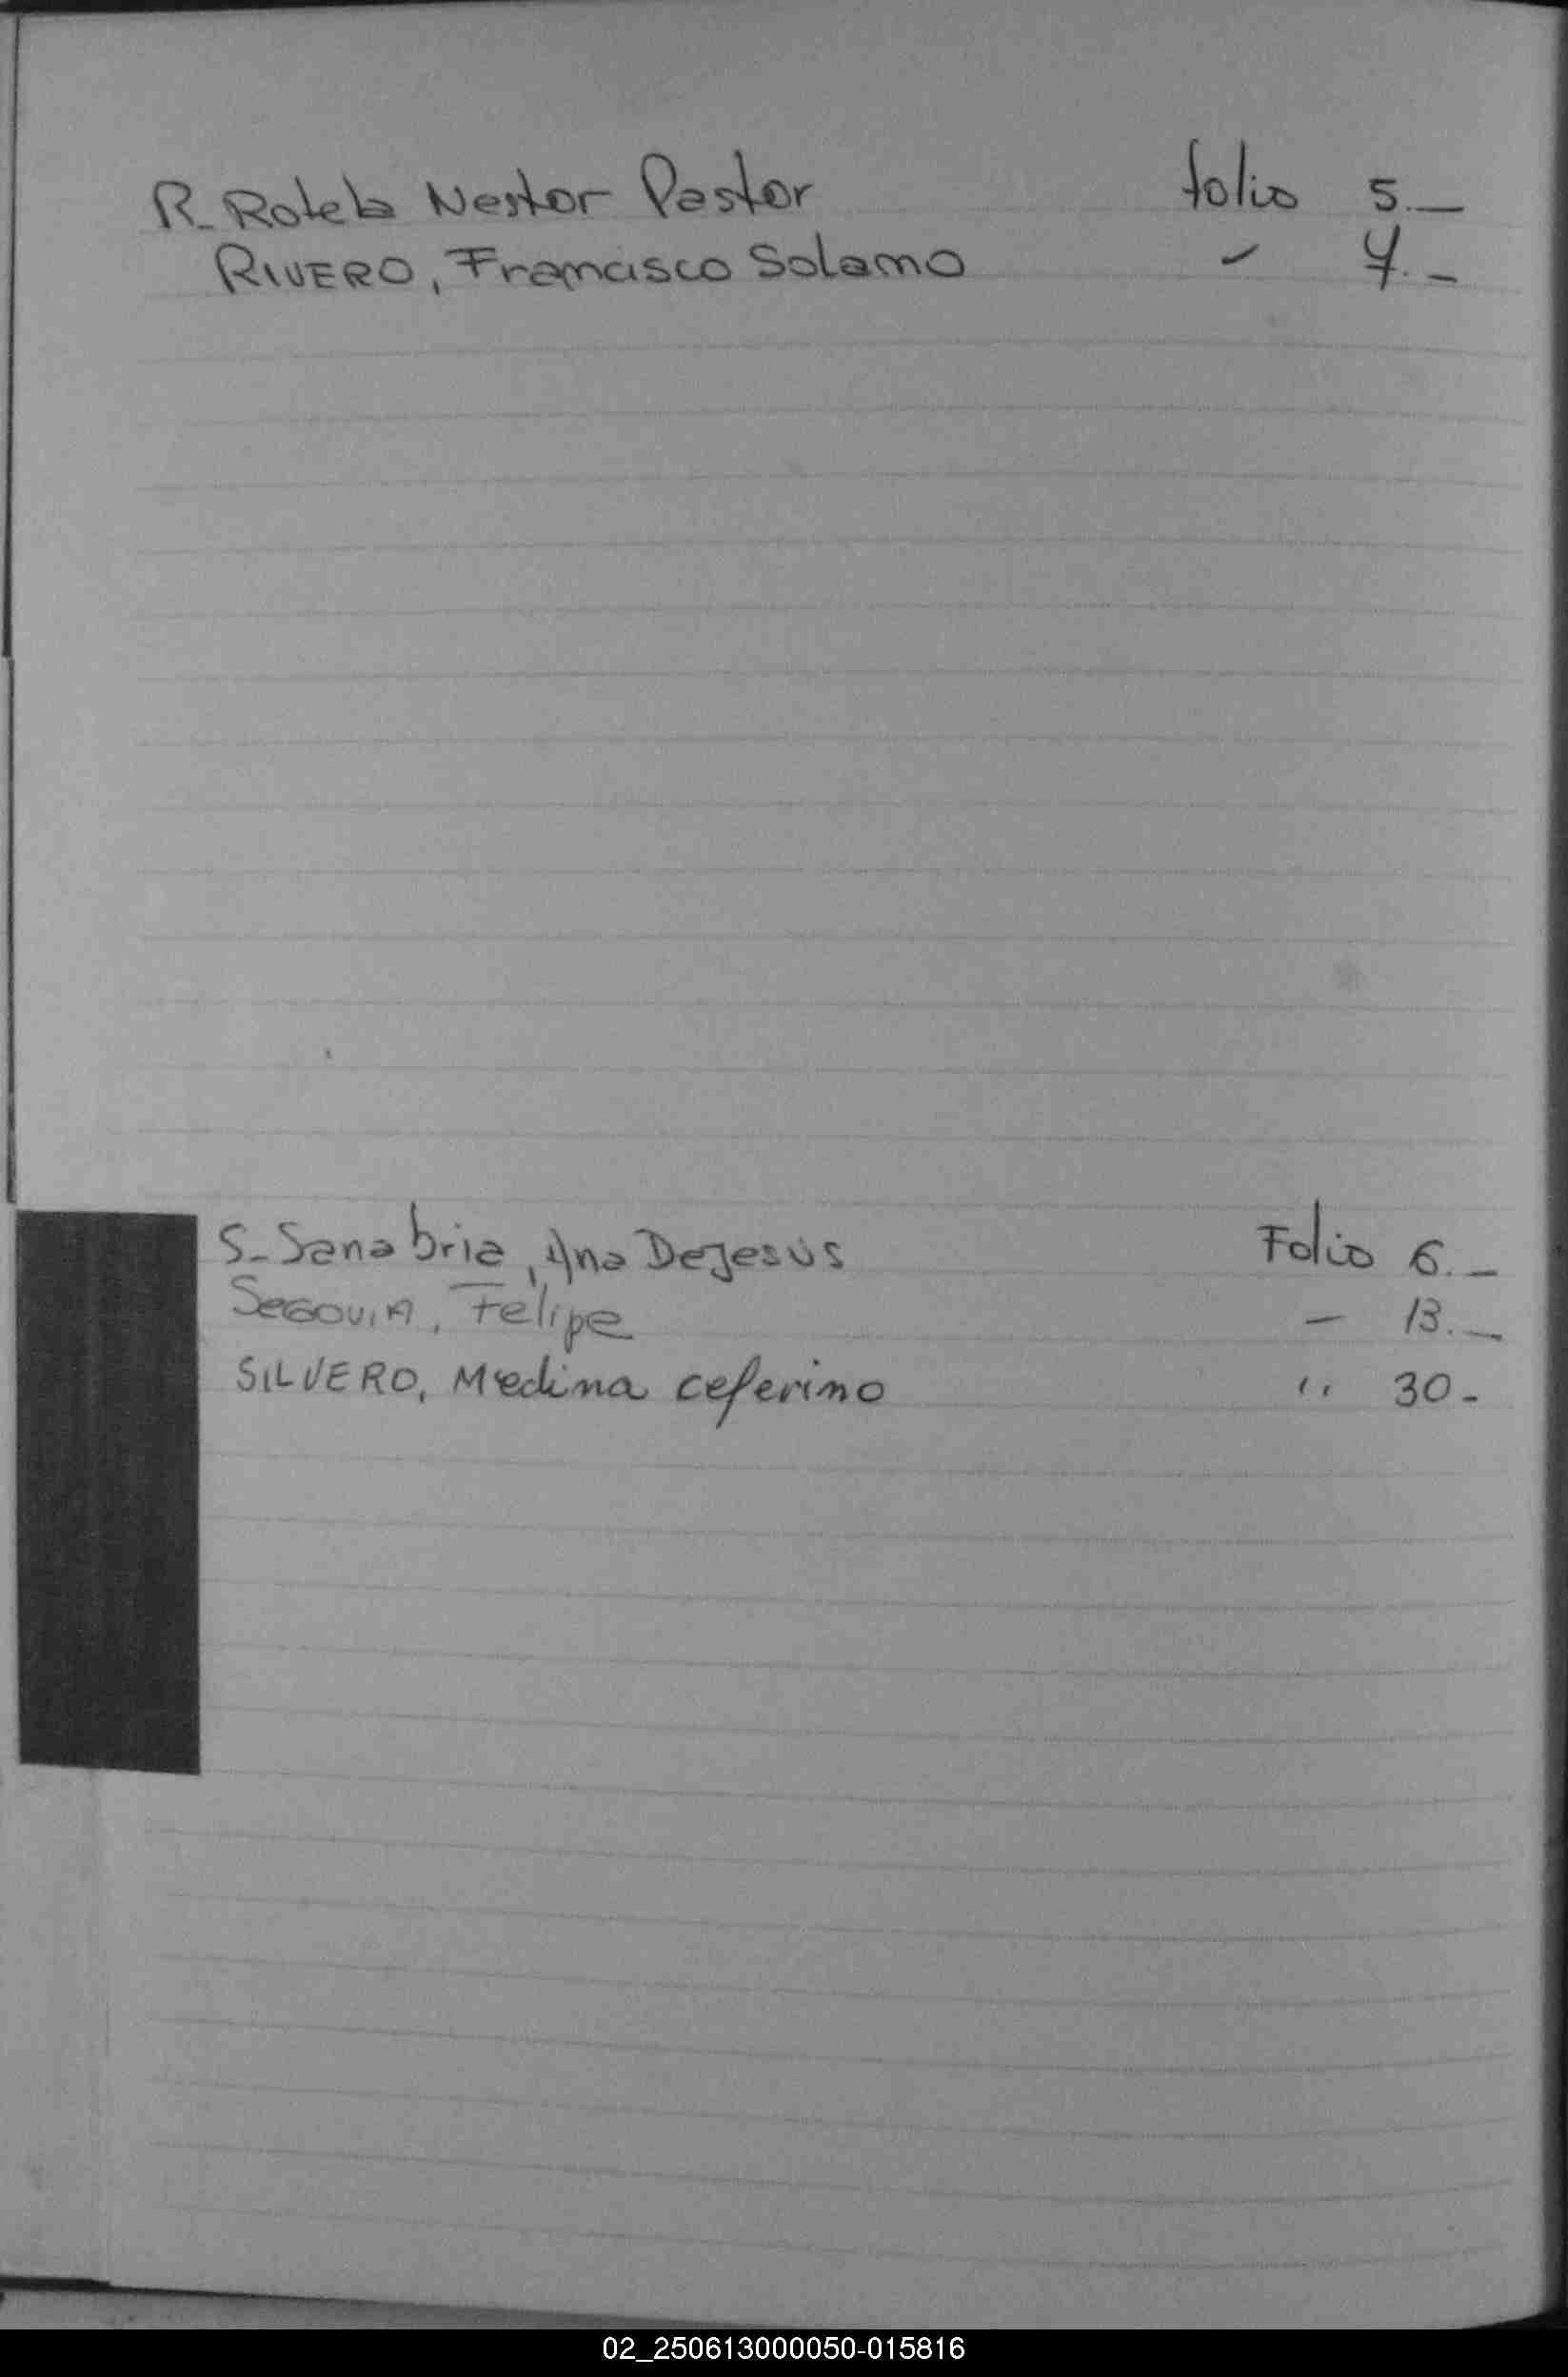 R_ Rotela Nestor Pastor folio 5._
RIVERO, Francisco Solano - 7._
S_ Sanabria, Ana DeJesús Folio 6._
SEGOVIA, Felipe - 13._
SILVERO, Medina ceferino '' 30-
02_250613000050-015816